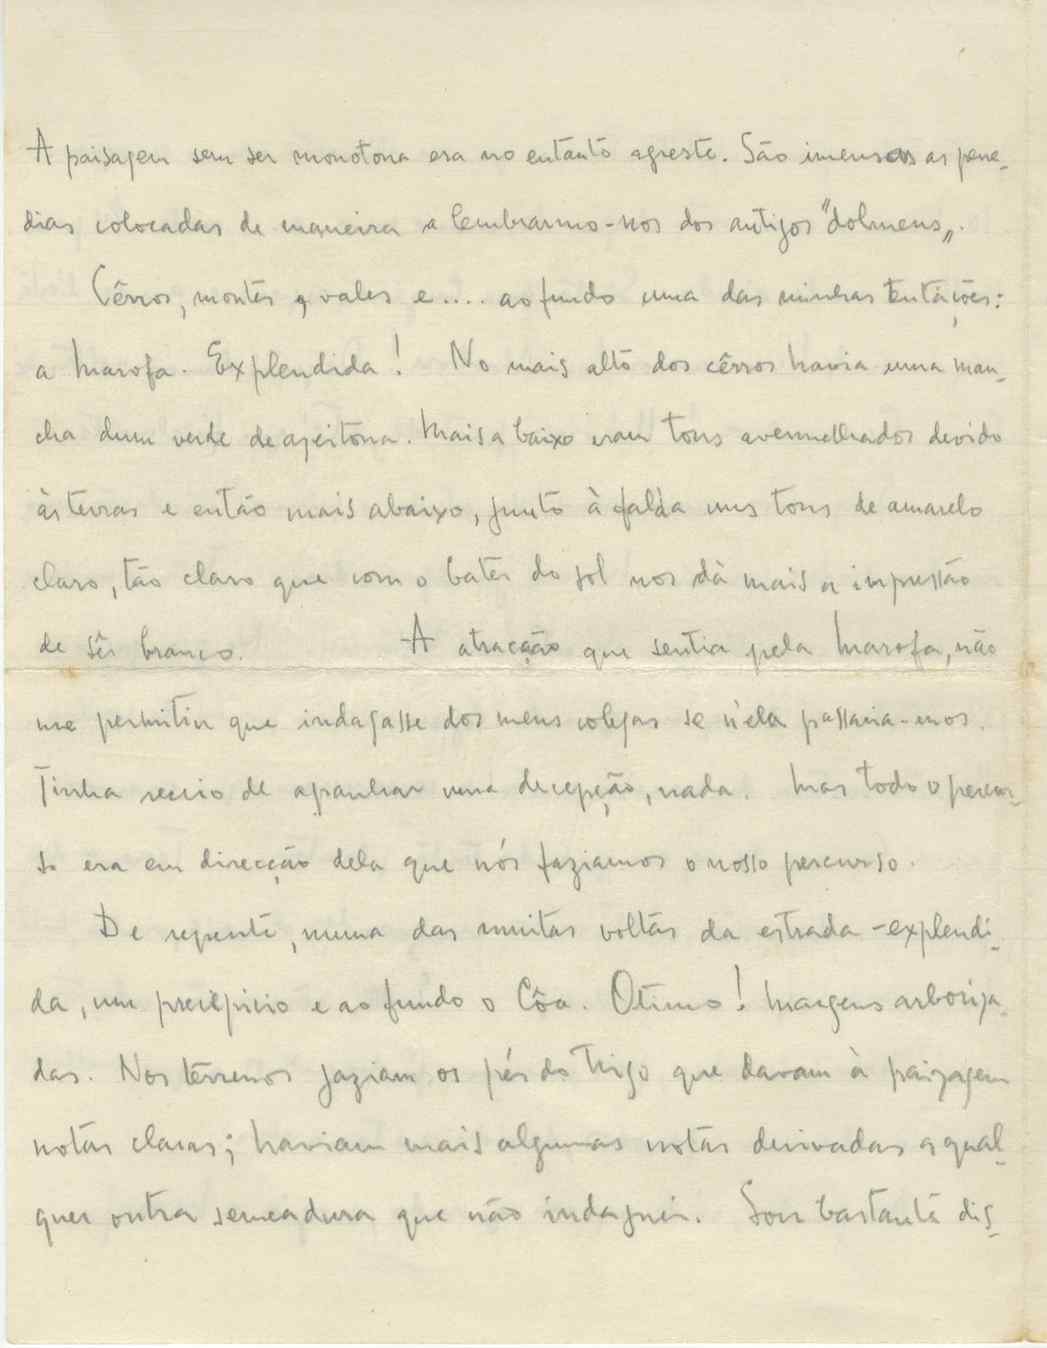 A paisagem sem ser monotona era no entanto agreste. São imensas as pene-
dias colocadas de maneira a lembrarmo-nos dos antigos "dolmens„.
Cêrros, montes, vales e.... ao fundo uma das minhas tentações:
a Marofa. Explendida! No mais alto dos cêrros havia uma man-
cha dum verde de azeitona. Mais a baixo eram tons avermelhados devido
às terras e então mais abaixo, junto à falda uns tons de amarelo
claro, tão claro que com o bater do sol nos dá mais a impressão
de sêr branco. A atracção que sentia pela Marofa, não
me permitiu que indagasse dos meus colegas se n'ela passaria-mos.
Tinha receio de apanhar uma decepção, nada. Mas todo o percur-
so era em direcção dela que nós faziamos o nosso percurso.
De repente, numa das muitas voltas da estrada - explendi-
da, um precipicio e ao fundo o Côa. Otimo! Margens arboriza-
das. Nos terrenos jaziam os pés do Trigo que davam à paizagem
notas claras; haviam mais algumas notas derivadas a qual-
quer outra semeadura que não indaguei. Sou bastante dis-